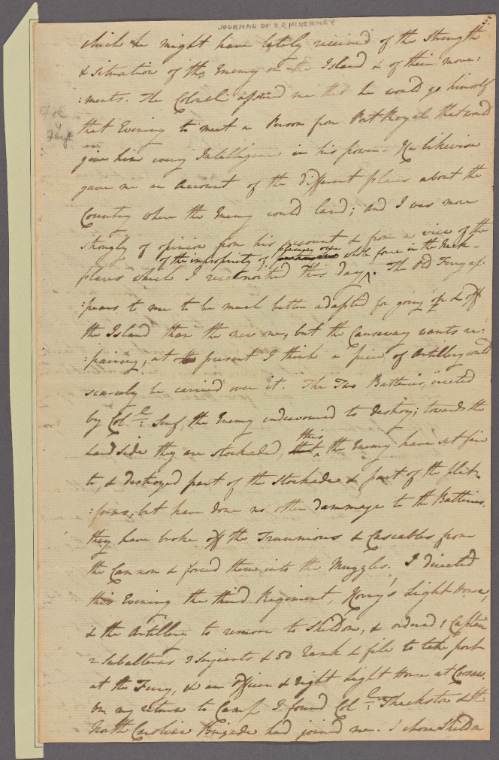 JOURNAL OF
which he might have lately received of the Strength
& situation of the Enemy on the Island & of their move:
:ments. The Colonel assured me that he would go himself
that Evening to meet a Person from Port Royal that would
give him every Intelligence in his power. He likewise
gave me an Account of the different places about the
Country where the Enemy could land; and I was more
strongly of opinion from his account & from a view of the
places which I reconnoitred this day, of the impropriety of whole force in the Neck.
The Old Ferry ap:
:pears to me to be much better adapted for going up & off
the Island than the new one, but the Causeway wants re:
:pairing, at present I think a piece of Artillery could
scarcely be carried over it. The Two Batteries, erected
by Col. the Enemy endeavoured to Destroy; towards the
land side they are stockaded, this the Enemy have set fire
to, & destroyed part of the Stockade & part of the plat:
:form, but have done no other dammage to the Batteries.
they have broke off the Trunnions & Cascables from
the Cannon & forced them into the Muzzles. I directed
this Evening the third Regiment, Horry's Light Horse,
& the Artillery to remove to Sheldon, & ordered 1 Captain
2 Subalterns 2 Serjeants & 50 Rank & file to take post
at the Ferry, & an Officer & Eight Light Horse at
On my return to Camp I found Col. Thackston & the
North Carolina Brigade had joined me. I chose Sheldon